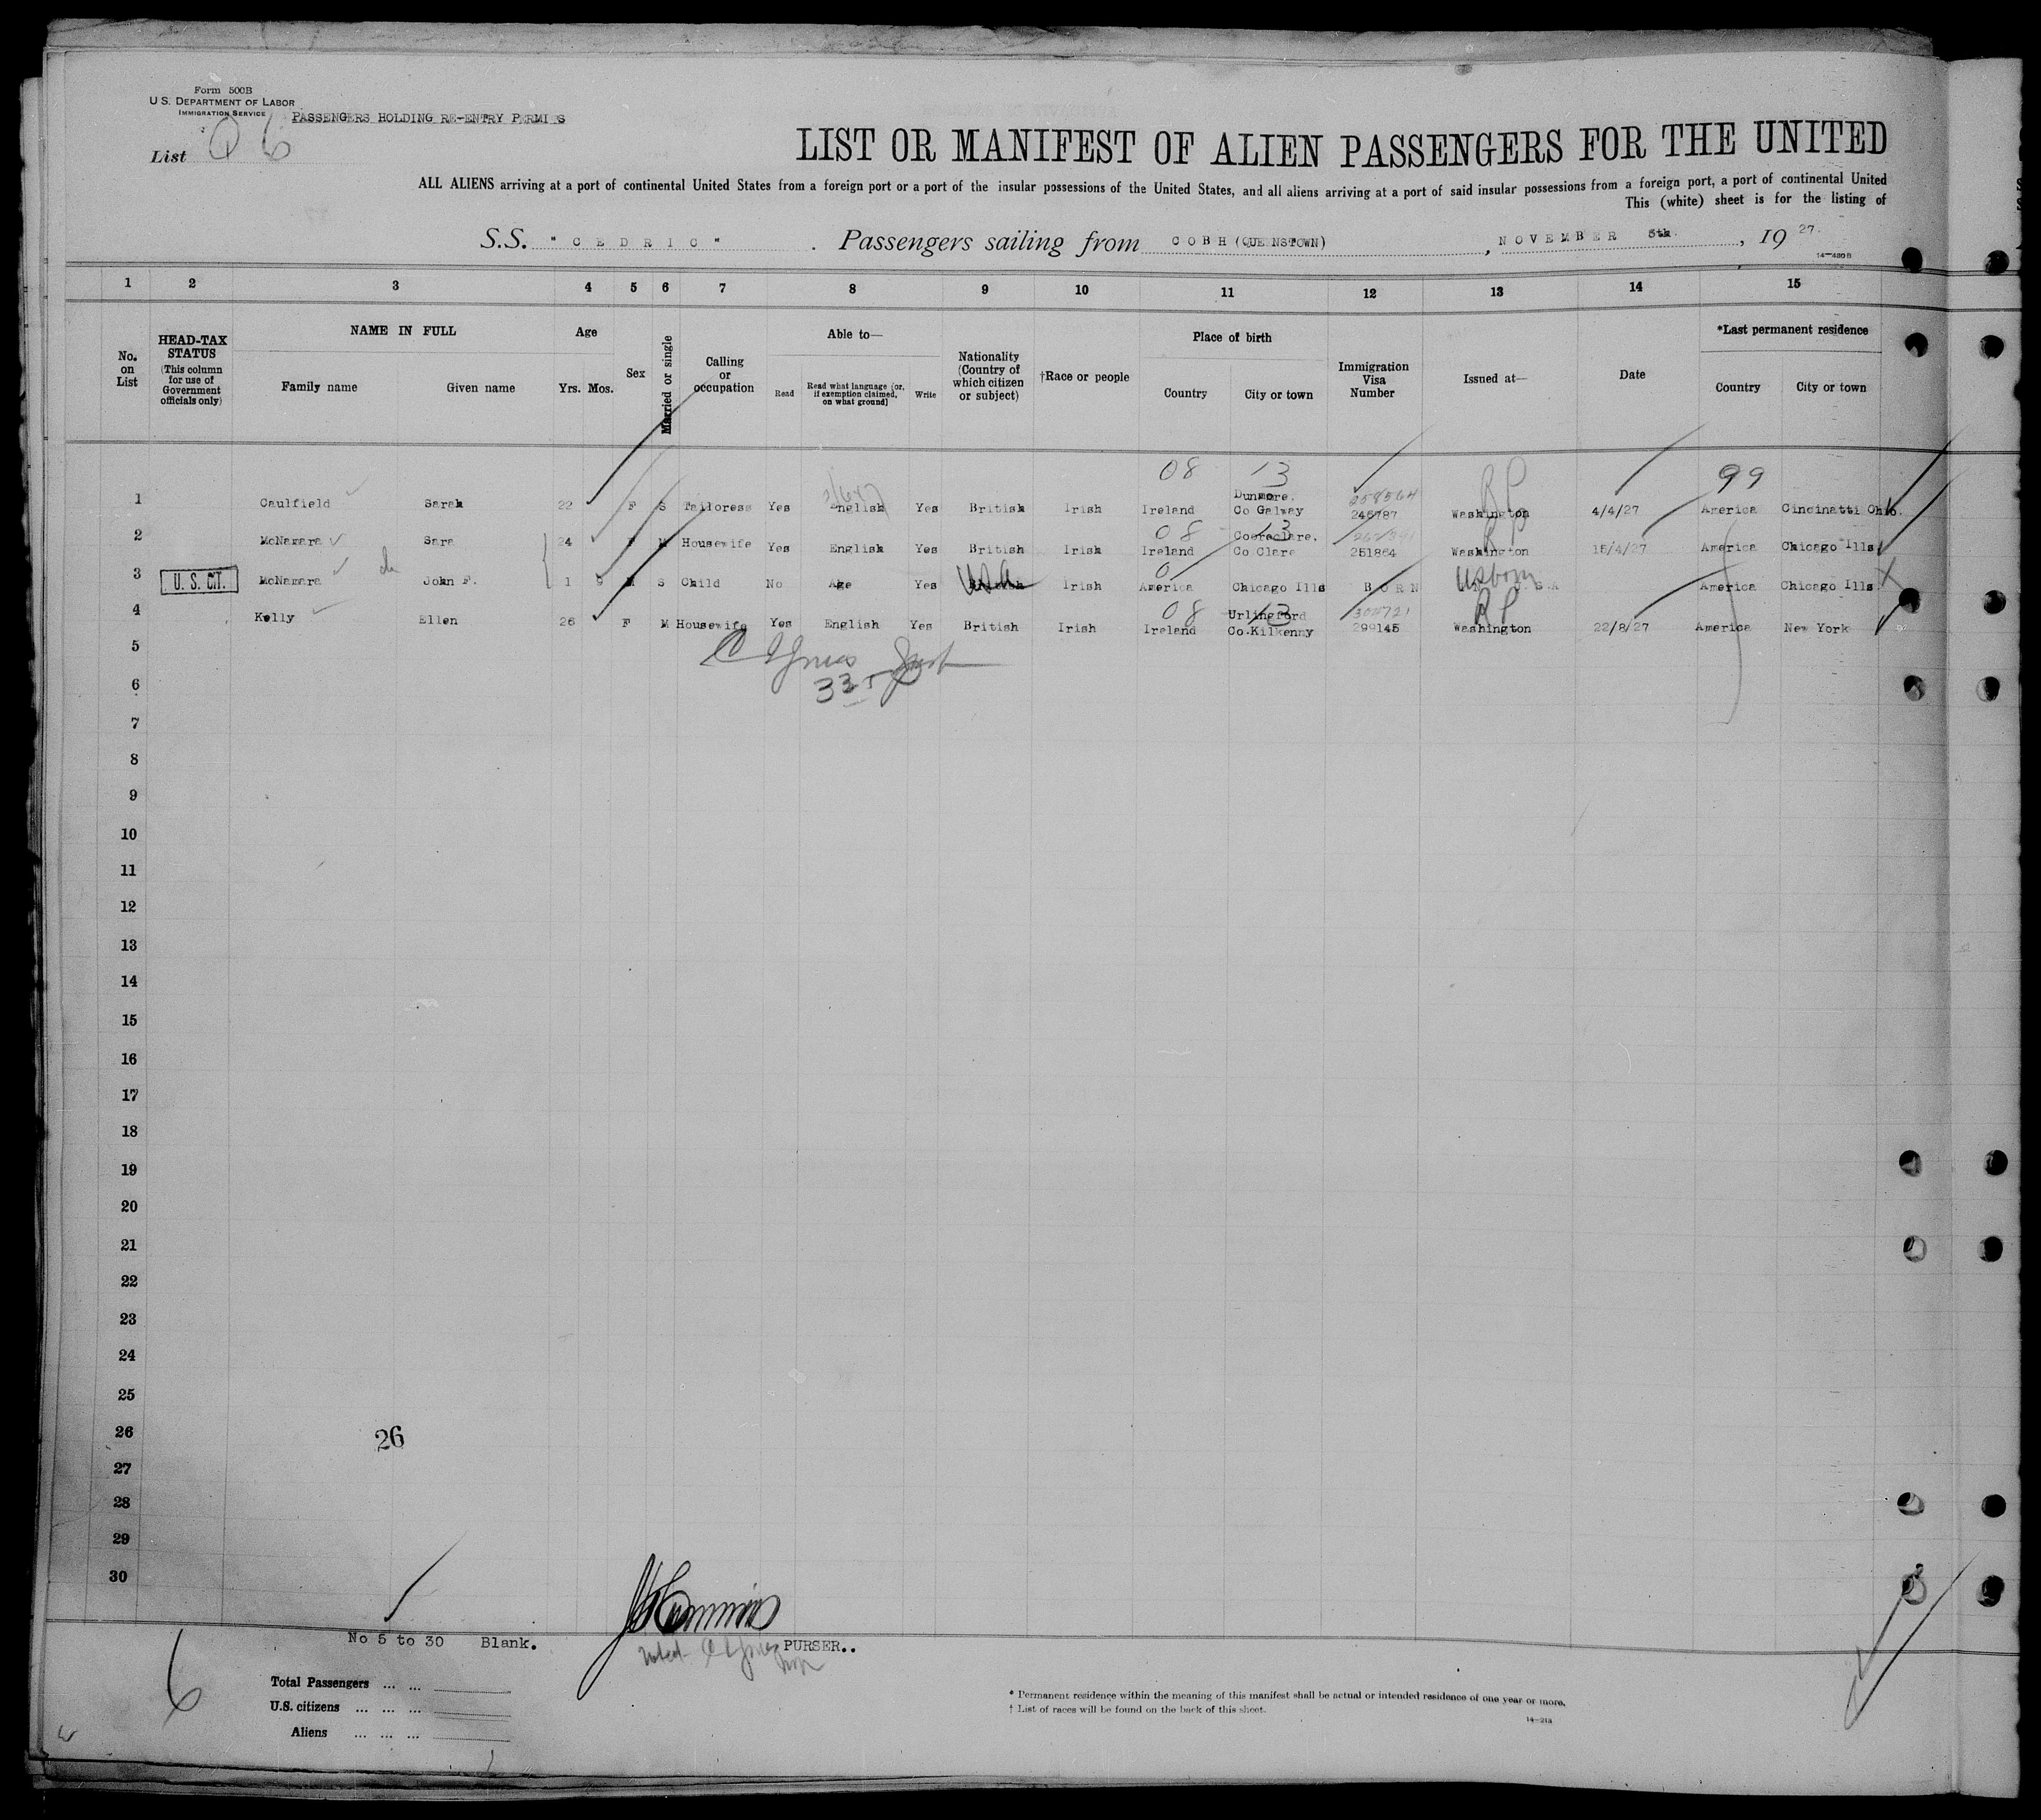 Form 500B
U.S. DEPARTMENT OF LABOR
IMMIGRATION SERVICE
PASSENGERS HOLDING RE-ENTRY PERMI S
List 6
LIST OR MANIFEST OF ALIEN PASSENGERS FOR THE UNITED
ALL ALIENS arriving at a port of continental United States from a foreign port or a port of the insular possessions of the United States, and all aliens arriving at a port of said insular possessions from a foreign port, a port of continental United
This (white) sheet is for the listing of
S.S. "CEDRIC". Passengers sailing from COBH (QUEENSTOWN), NOVEMBER 5th, 1927.
14-480B
1 2 3 4 5 6 7 8 9 10 11 12 13 14 15
No. on List
HEAD-TAX STATUS (This column for use of Government officials only)
NAME IN FULL
Family name Given name
Age
Yrs. Mos.
Sex
Married or single
Calling or occupation
Able to—
Read
Read what language (or, if exemption claimed, on what ground)
Write
Nationality (Country of which citizen or subject)
†Race or people
Place of birth
Country City or town
Immigration Visa Number
Issued at—
Date
*Last permanent residence
Country City or town
08 13 RP 99
1 Caulfield Sarah 22 F S Tailoress Yes English Yes British Irish Ireland Dunmore. Co Galway 246787 Washington 4/4/27 America Cincinatti Ohio.
08 13 RP
2 McNamara Sara 24 F M Housewife Yes English Yes British Irish Ireland Cooraclare. Co Clare 251864 Washington 15/4/27 America Chicago Ills
3 U.S. CIT. McNamara John F. 1 8 M S Child No Age Yes British USA Irish America Chicago Ills BORN US born America Chicago Ills
08 13 RP
4 Kelly Ellen 26 F M Housewife Yes English Yes British Irish Ireland Urlingford Co.Kilkenny 299145 Washington 22/8/27 America New York
5
6
7
8
9
10
11
12
13
14
15
16
17
18
19
20
21
22
23
24
25
26
26
27
28
29
30
No 5 to 30 Blank.
PURSER..
6
Total Passengers ... ...
U.S. citizens ... ... ...
Aliens ... ... ...
* Permanent residence within the meaning of this manifest shall be actual or intended residence of one year or more.
† List of races will be found on the back of this sheet.
14-213